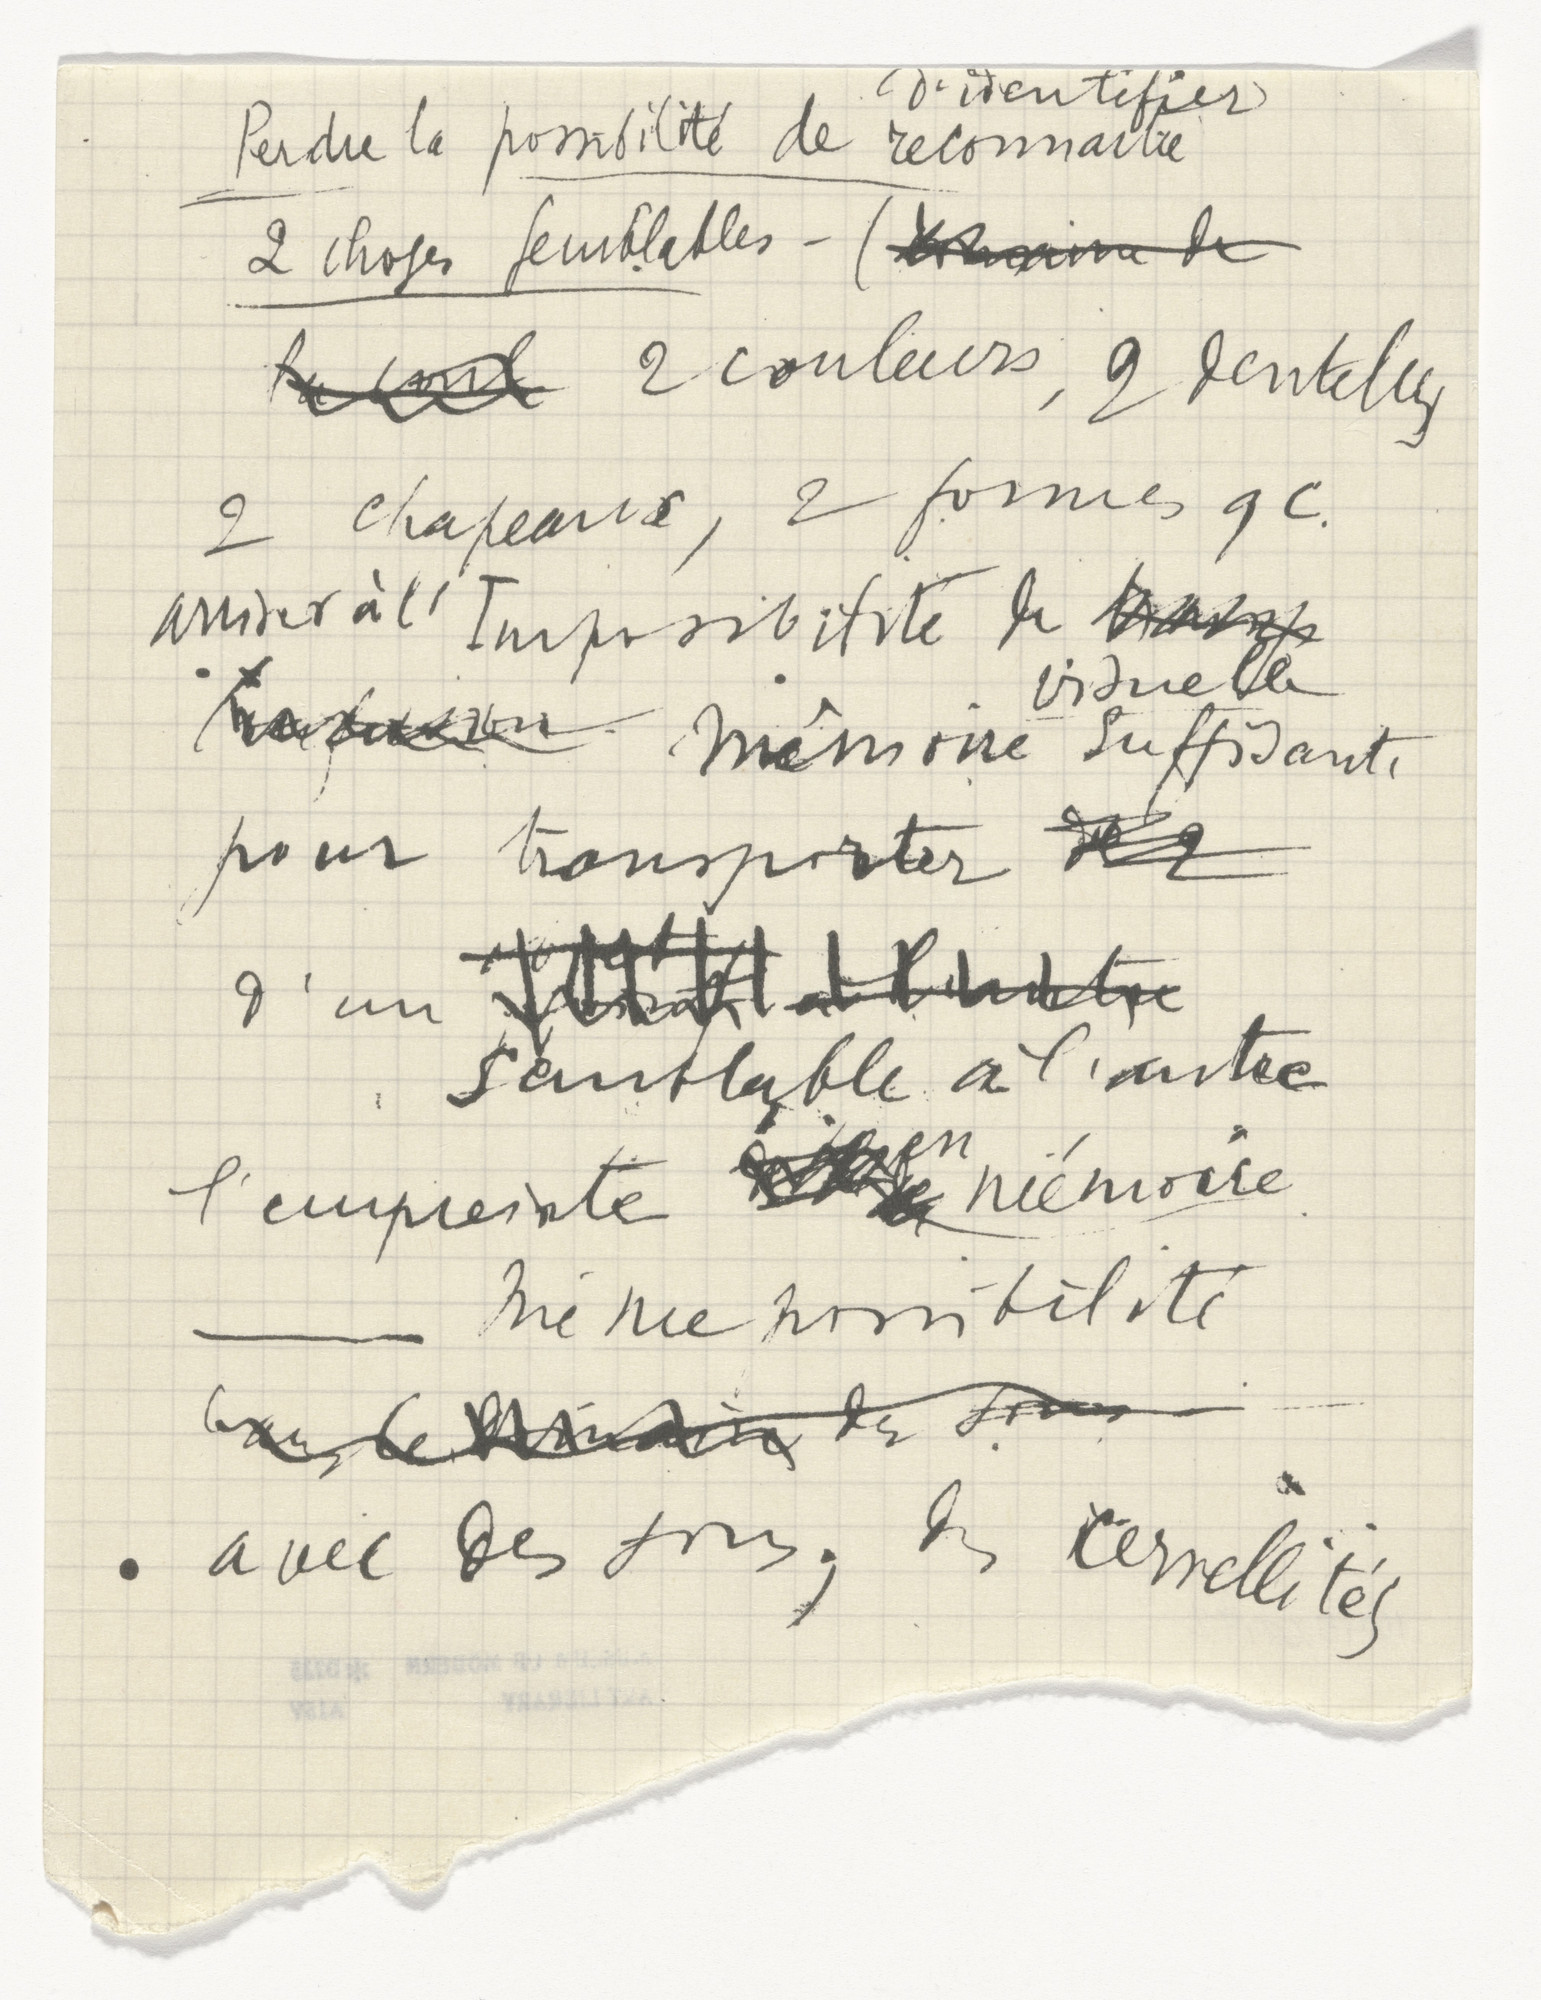 (d'identifier)
Perdre la possibilité de reconnaître
2 choses semblables - (
2 couleurs, 2 dentelles
2 chapeaux, 2 formes qc.
arriver à l'Impossibilité de
visuelle
mémoire suffisante
pour transporter
d'un
semblable à l'autre
en
l'empreinte mémoire.
Même possibilité
des sons
avec des sons, des cervellités
MODERN
LIBRARY